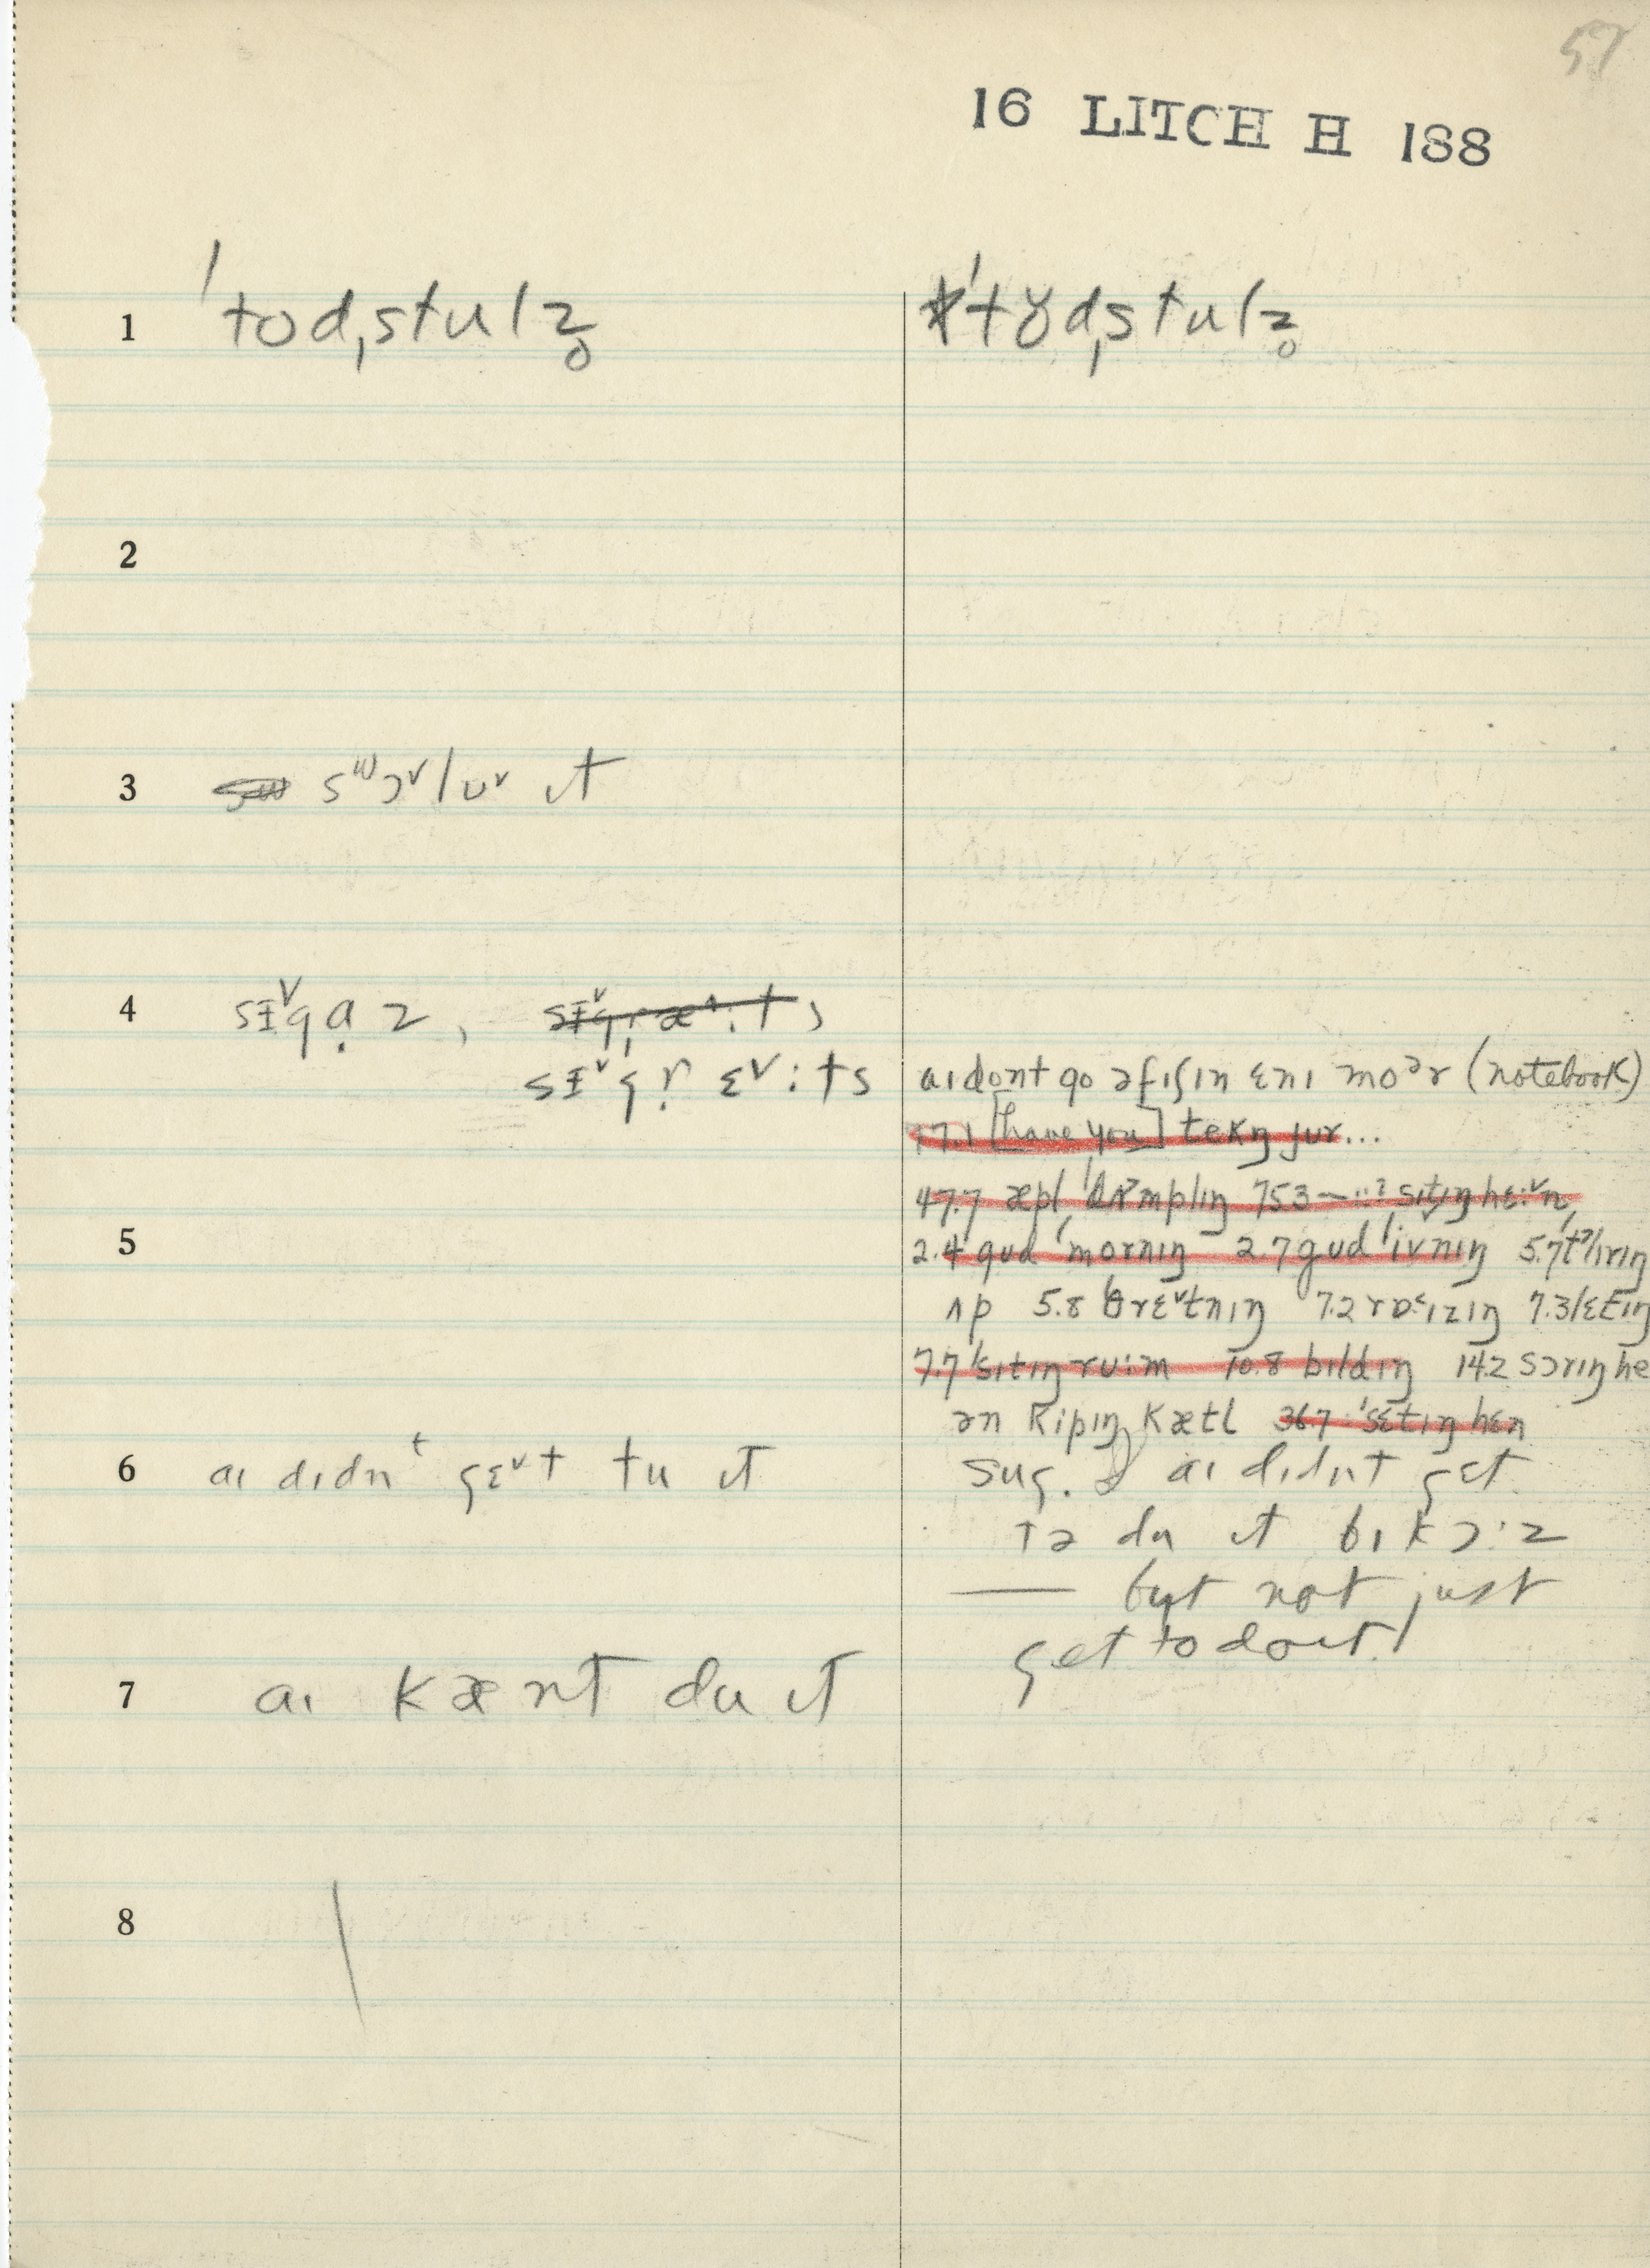 57
16 LITCH H 188
1 ˈtod,stulz̥ ˈtɵd,stulz̥
2
3 sʷɔ˅lʊ˅ ɪt
4 sɪ˅gɑz,
sɪ˅gr̩ɛ˅:ts aɪ dont go əfɪʃɪn ɛnɪ moᵊr (notebook)
17.1 [have you] tekŋ jur...
47.7 æpl ˈdʌmplɪŋ 753 — ..? sɪtɪŋ hɛ:˅n
5 2.4 gud ˈmornɪŋ 2.7 gud ˈivnɪŋ 5.7
ʌp 5.8 θrɛ˅tnɪŋ 7.2 7.3
7.7 ˈsɪtɪŋ ru:m 10.8 bɪldɪŋ 14.2 sɔrɪŋ he
ən kipɪŋ kætl 36.7 ˈsɛtɪŋ hɛn
6 aɪ dɪdnᵗ gɛ˅t tu ɪt sug. aɪ dɪdnt gɛt
tə du ɪt bɪkɔ:z
— but not just
get to do it!
7 aɪ kænt du ɪt
8 \